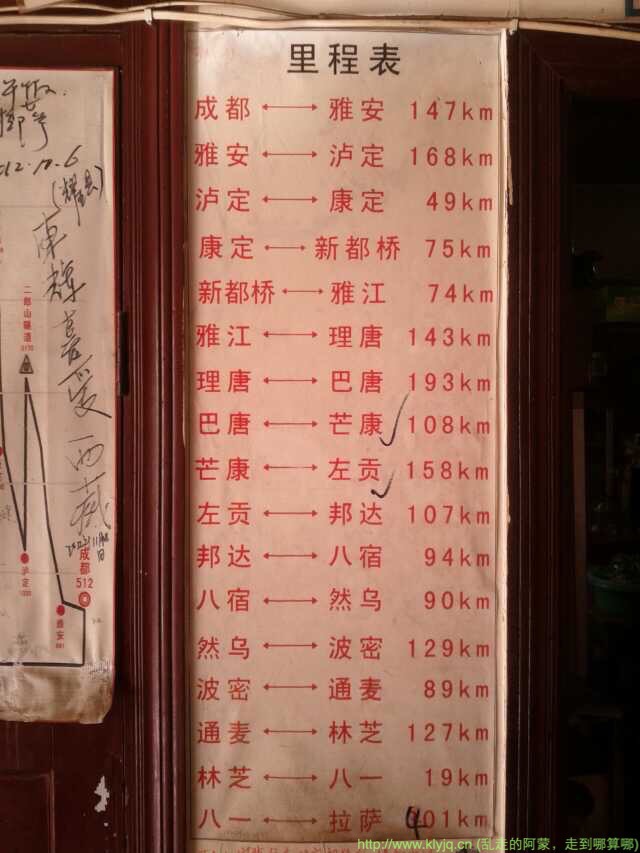 里程表
成都 ⟷ 雅安 147km
雅安 ⟷ 泸定 168km
泸定 ⟷ 康定 49km
康定 ⟷ 新都桥 75km
新都桥 ⟷ 雅江 74km
雅江 ⟷ 理唐 143km
理唐 ⟷ 巴唐 193km
巴唐 ⟷ 芒康 108km
芒康 ⟷ 左贡 158km
左贡 ⟷ 邦达 107km
邦达 ⟷ 八宿 94km
八宿 ⟷ 然乌 90km
然乌 ⟷ 波密 129km
波密 ⟷ 通麦 89km
通麦 ⟷ 林芝 127km
林芝 ⟷ 八一 19km
八一 ⟷ 拉萨 401km
二郎山隧道
喜爱西藏
成都
512
泸定
雅安
http://www.klyjq.cn (乱走的阿蒙，走到哪算哪)